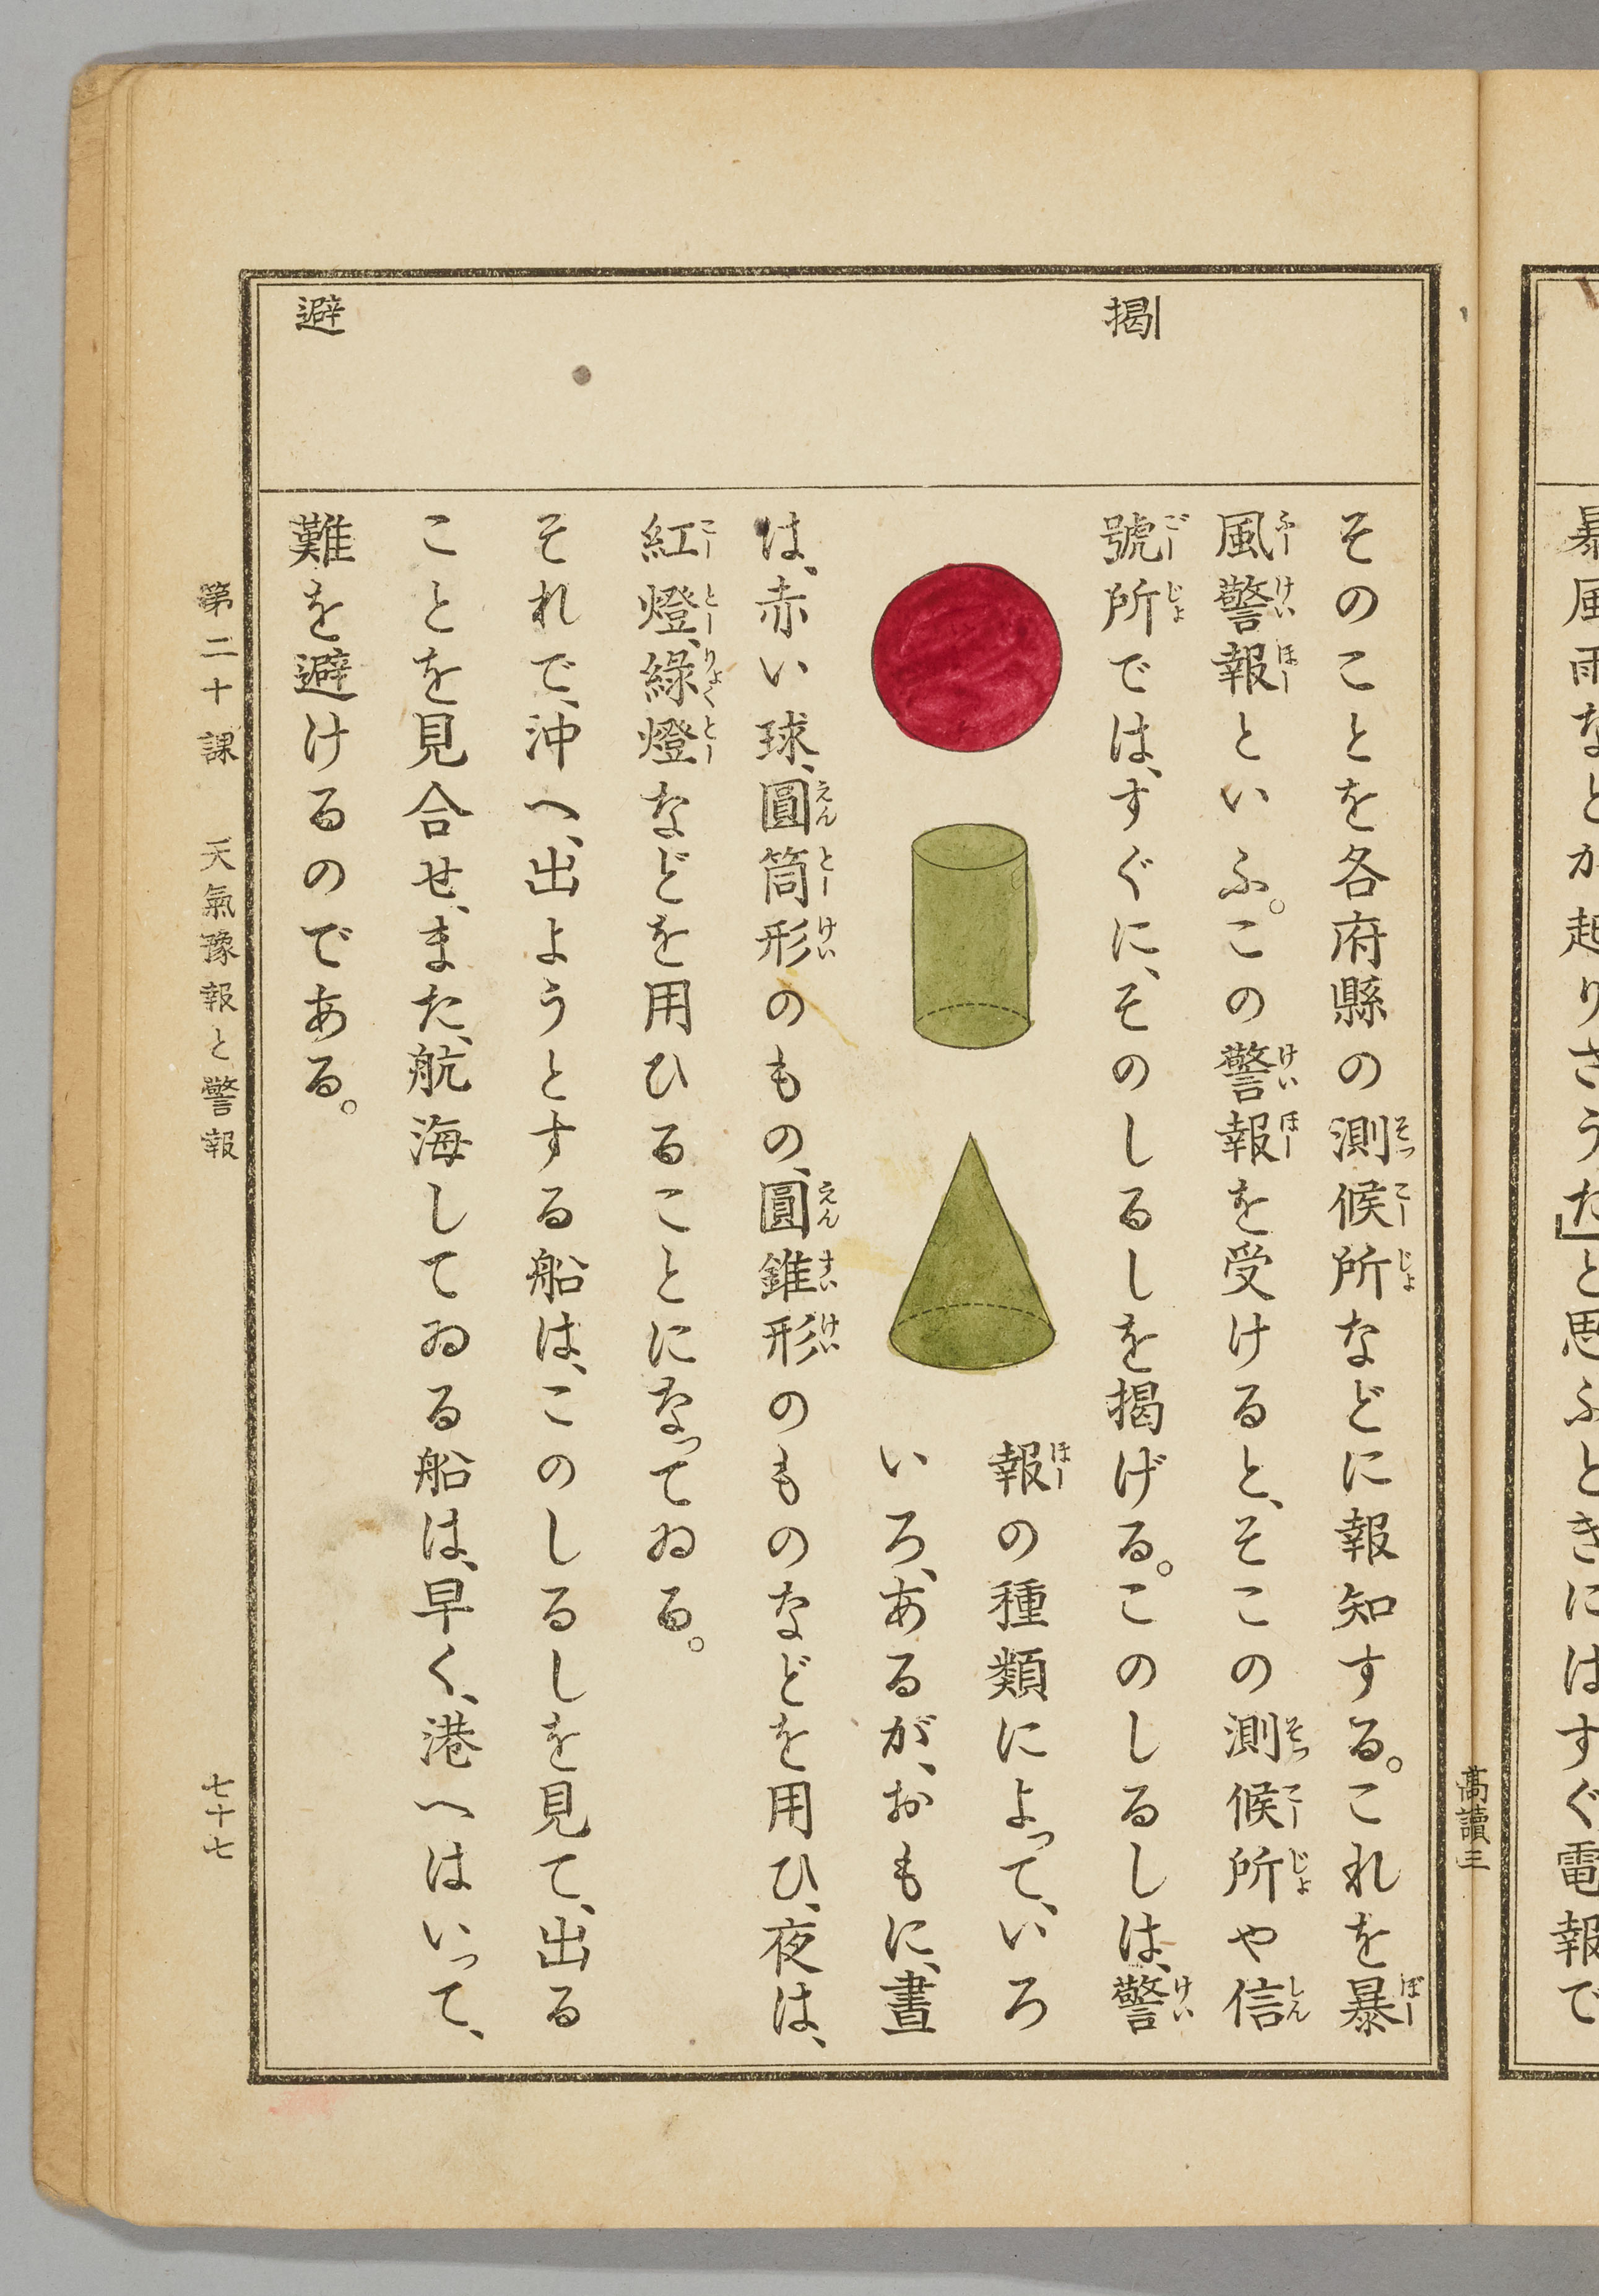 暴風雨などが起りさうだ」と思ふときにはすぐ電報で
高讀三
揭
避
そのことを各府縣の測候所などに報知する。これを暴
風警報といふ。この警報を受けると、そこの測候所や信
號所では、すぐに、そのしるしを揭げる。このしるしは、警
報の種類によって、いろ
いろ、あるが、おもに、晝
は、赤い球、圓筒形のもの、圓錐形のものなどを用ひ、夜は、
紅燈、綠燈などを用ひることになってゐる。
それで、沖へ、出ようとする船は、このしるしを見て、出る
ことを見合せ、また、航海してゐる船は、早く、港へはいって、
難を避けるのである。
第二十課 天氣豫報と警報
七十七